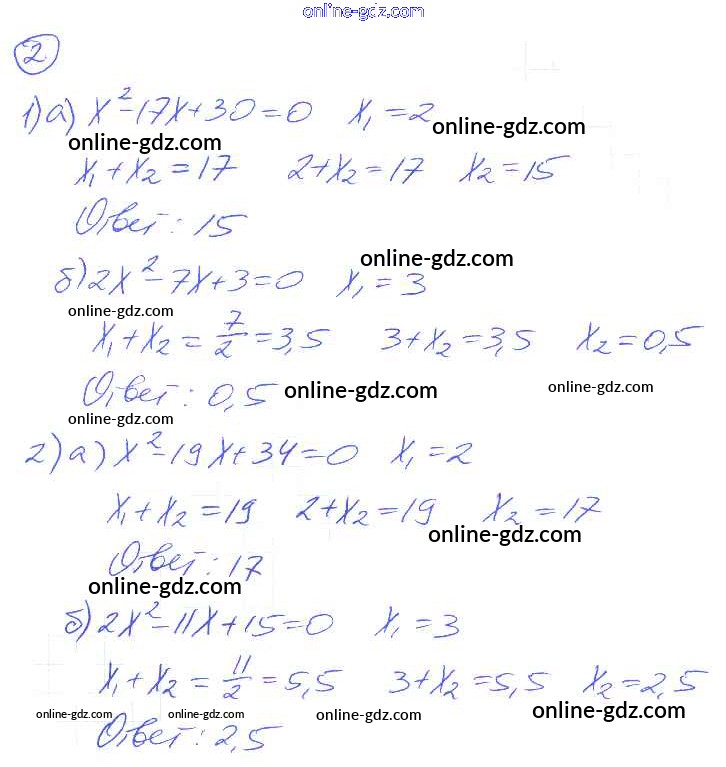 online-gdz.com
2
1) а) x² - 17x + 30 = 0 x₁ = 2
online-gdz.com online-gdz.com
x₁ + x₂ = 17 2 + x₂ = 17 x₂ = 15
Ответ: 15
online-gdz.com
б) 2x² - 7x + 3 = 0 x₁ = 3
online-gdz.com
x₁ + x₂ = 7/2 = 3,5 3 + x₂ = 3,5 x₂ = 0,5
Ответ: 0,5 online-gdz.com online-gdz.com
online-gdz.com
2) а) x² - 19x + 34 = 0 x₁ = 2
x₁ + x₂ = 19 2 + x₂ = 19 x₂ = 17
online-gdz.com
Ответ: 17
online-gdz.com
б) 2x² - 11x + 15 = 0 x₁ = 3
x₁ + x₂ = 11/2 = 5,5 3 + x₂ = 5,5 x₂ = 2,5
online-gdz.com online-gdz.com online-gdz.com online-gdz.com
Ответ: 2,5